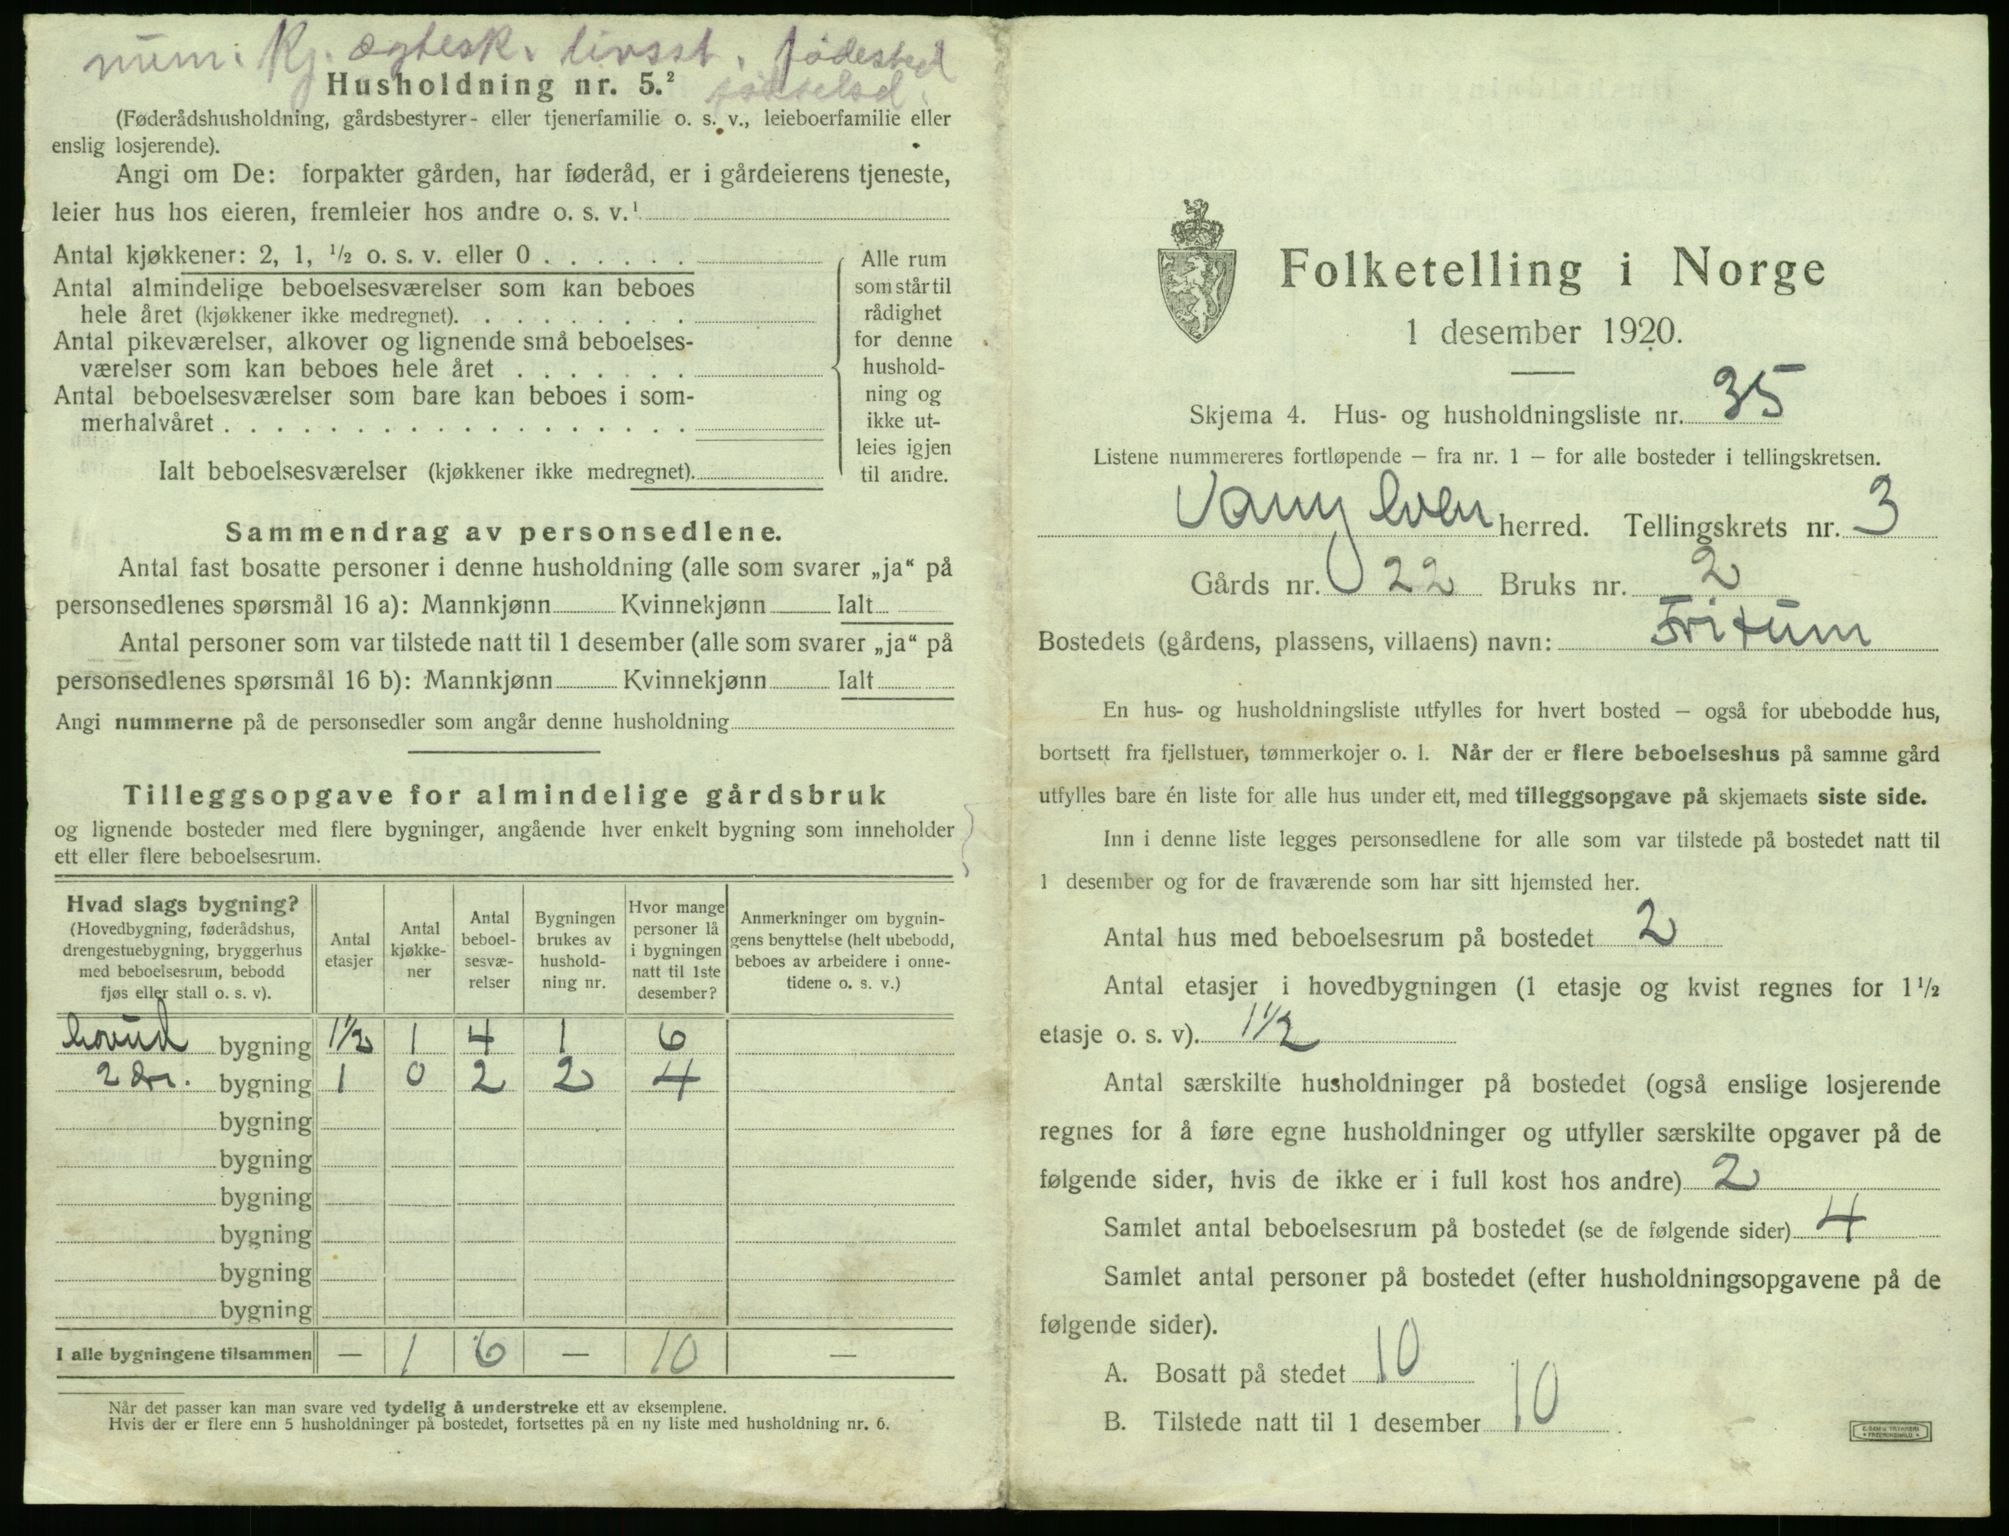 num. Kj. ægtesk. livsst. fødested
fødselsd.
Husholdning nr. 5.²
(Føderådshusholdning, gårdsbestyrer- eller tjenerfamilie o. s. v., leieboerfamilie eller
enslig losjerende).
Angi om De: forpakter gården, har føderåd, er i gårdeierens tjeneste,
leier hus hos eieren, fremleier hos andre o. s. v.¹
Antal kjøkkener: 2, 1, ½ o. s. v. eller 0
Antal almindelige beboelsesværelser som kan beboes
hele året (kjøkkener ikke medregnet).
Antal pikeværelser, alkover og lignende små beboelses-
værelser som kan beboes hele året
Antal beboelsesværelser som bare kan beboes i som-
merhalvåret
Ialt beboelsesværelser (kjøkkener ikke medregnet).
Alle rum
som står til
rådighet
for denne
hushold-
ning og
ikke ut-
leies igjen
til andre.
Sammendrag av personsedlene.
Antal fast bosatte personer i denne husholdning (alle som svarer „ja“ på
personsedlenes spørsmål 16 a): Mannkjønn Kvinnekjønn Ialt
Antal personer som var tilstede natt til 1 desember (alle som svarer „ja“ på
personsedlenes spørsmål 16 b): Mannkjønn Kvinnekjønn Ialt
Angi nummerne på de personsedler som angår denne husholdning
Tilleggsopgave for almindelige gårdsbruk
og lignende bosteder med flere bygninger, angående hver enkelt bygning som inneholder
ett eller flere beboelsesrum.
Hvad slags bygning?
(Hovedbygning, føderådshus,
drengestuebygning, bryggerhus
med beboelsesrum, bebodd
fjøs eller stall o. s. v).
Antal
etasjer
Antal
kjøkke-
ner
Antal
beboel-
sesvæ-
relser
Bygningen
brukes av
hushold-
ning nr.
Hvor mange
personer lå
i bygningen
natt til 1ste
desember?
Anmerkninger om bygnin-
gens benyttelse (helt ubebodd,
beboes av arbeidere i onne-
tidene o. s. v.)
hovud bygning 1½ 1 4 1 6
2 dr. bygning 1 0 2 2 4
bygning
bygning
bygning
bygning
bygning
bygning
I alle bygningene tilsammen — 1 6 — 10 —
Når det passer kan man svare ved tydelig å understreke ett av eksemplene.
Hvis der er flere enn 5 husholdninger på bostedet, fortsettes på en ny liste med husholdning nr. 6.
Folketelling i Norge
1 desember 1920.
Skjema 4. Hus- og husholdningsliste nr. 35
Listene nummereres fortløpende – fra nr. 1 – for alle bosteder i tellingskretsen.
Vanylven herred. Tellingskrets nr. 3
Gårds nr. 22 Bruks nr. 2
Bostedets (gårdens, plassens, villaens) navn: Fritum
En hus- og husholdningsliste utfylles for hvert bosted – også for ubebodde hus,
bortsett fra fjellstuer, tømmerkojer o. l. Når der er flere beboelseshus på samme gård
utfylles bare én liste for alle hus under ett, med tilleggsopgave på skjemaets siste side.
Inn i denne liste legges personsedlene for alle som var tilstede på bostedet natt til
1 desember og for de fraværende som har sitt hjemsted her.
Antal hus med beboelsesrum på bostedet 2
Antal etasjer i hovedbygningen (1 etasje og kvist regnes for 1½
etasje o. s. v). 1½
Antal særskilte husholdninger på bostedet (også enslige losjerende
regnes for å føre egne husholdninger og utfyller særskilte opgaver på de
følgende sider, hvis de ikke er i full kost hos andre) 2
Samlet antal beboelsesrum på bostedet (se de følgende sider) 4
Samlet antal personer på bostedet (efter husholdningsopgavene på de
følgende sider).
A. Bosatt på stedet 10
B. Tilstede natt til 1 desember 10